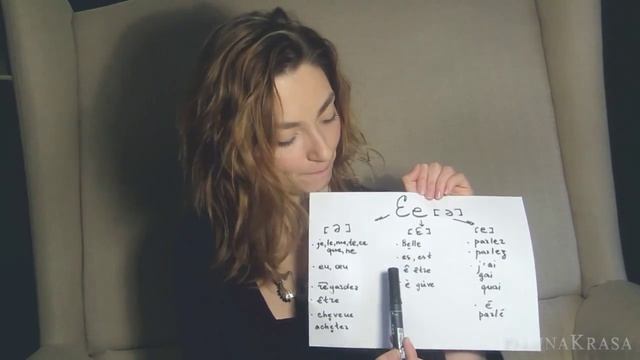 Ee [ə]
[ə]
· je, le, me, te, ce
que, ne
· eu, œu
· regarder
· être
· cheveux
acheter
[ɛ]
· Belle
· es, est
ê être
è grève
[e]
· parler
· parlez
j'ai
gai
quai
· é
parlé
INAKRASA